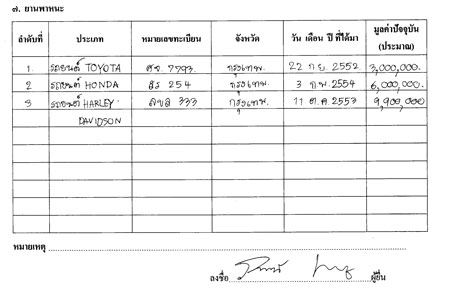 ๗. ยานพาหนะ
ลำดับที่ ประเภท หมายเลขทะเบียน จังหวัด วัน เดือน ปี ที่ได้มา มูลค่าปัจจุบัน (ประมาณ)
1. รถยนต์ TOYOTA ศจ. 7793 กรุงเทพ. 22 ก.ย. 2552 3,000,000.
2 รถยนต์ HONDA 254 กรุงเทพ. 3 ก.พ. 2554 6,000,000.
3 รถยนต์ HARLEY 333 กรุงเทพ. 11 ต.ค 2553 9,900,000
DAVIDSON
หมายเหตุ
ลงชื่อ ผู้ยื่น